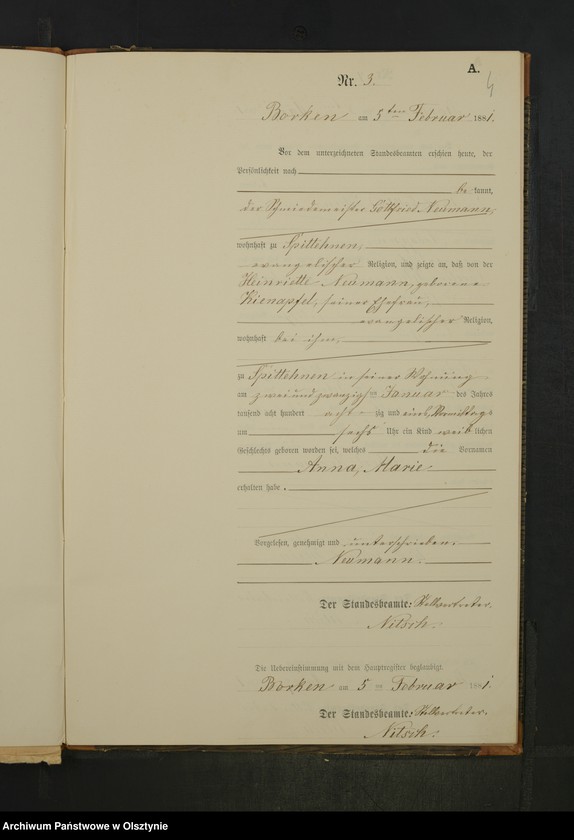 A.
4
Nr. 3.
Borken am 5ten Februar 1881.
Vor dem unterzeichneten Standesbeamten erschien heute, der
Persönlichkeit nach
be kannt,
der Schmiedemeister Gottfried Neumann,
wohnhaft zu Spittehnen,
evangelischer Religion, und zeigte an, daß von der
Henriette Neumann, geborene
Kienapfel, seiner Ehefrau,
evangelischer Religion,
wohnhaft bei ihm,
zu Spittehnen in seiner Wohnung
am zweiundzwanzigsten Januar des Jahres
tausend acht hundert acht zig und eins, Vormittags
um sechs Uhr ein Kind weib lichen
Geschlechts geboren worden sei, welches die Vornamen
Anna, Marie
erhalten habe.
Vorgelesen, genehmigt und unterschrieben.
Neumann.
Der Standesbeamte: Stellvertreter.
Nitsch.
Die Uebereinstimmung mit dem Hauptregister beglaubigt.
Borken am 5 ten Februar 1881.
Der Standesbeamte: Stellvertreter.
Nitsch.
Archiwum Państwowe w Olsztynie